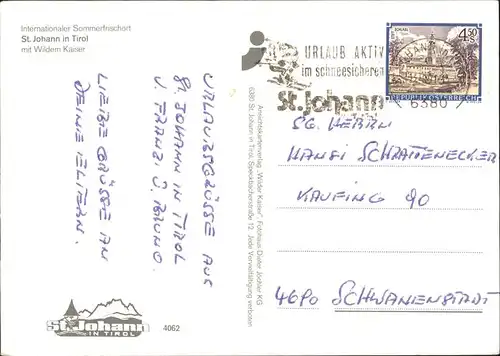 Internationaler Sommerfrischort
St. Johann in Tirol
mit Wildem Kaiser
URLAUBSGRÜSSE AUS
ST. JOHANN IN TIROL
V. FRANZI U. BRUNO.
LIEBE GRÜSSE AN
DEINE ELTERN.
St. Johann
IN TIROL
4062
Ansichtskartenverlag „Wilder Kaiser“, Fotohaus Dieter Jöchler KG
6380 St. Johann in Tirol, Speckbacherstraße 12. Jede Vervielfältigung verboten
URLAUB AKTIV
im schneesicheren
St. Johann
4.50
S
REPUBLIK ÖSTERREICH
6380
SG. HERRN
HANSI SCHRATTENECKER
KAUFING 90
4690 SCHWANENSTADT